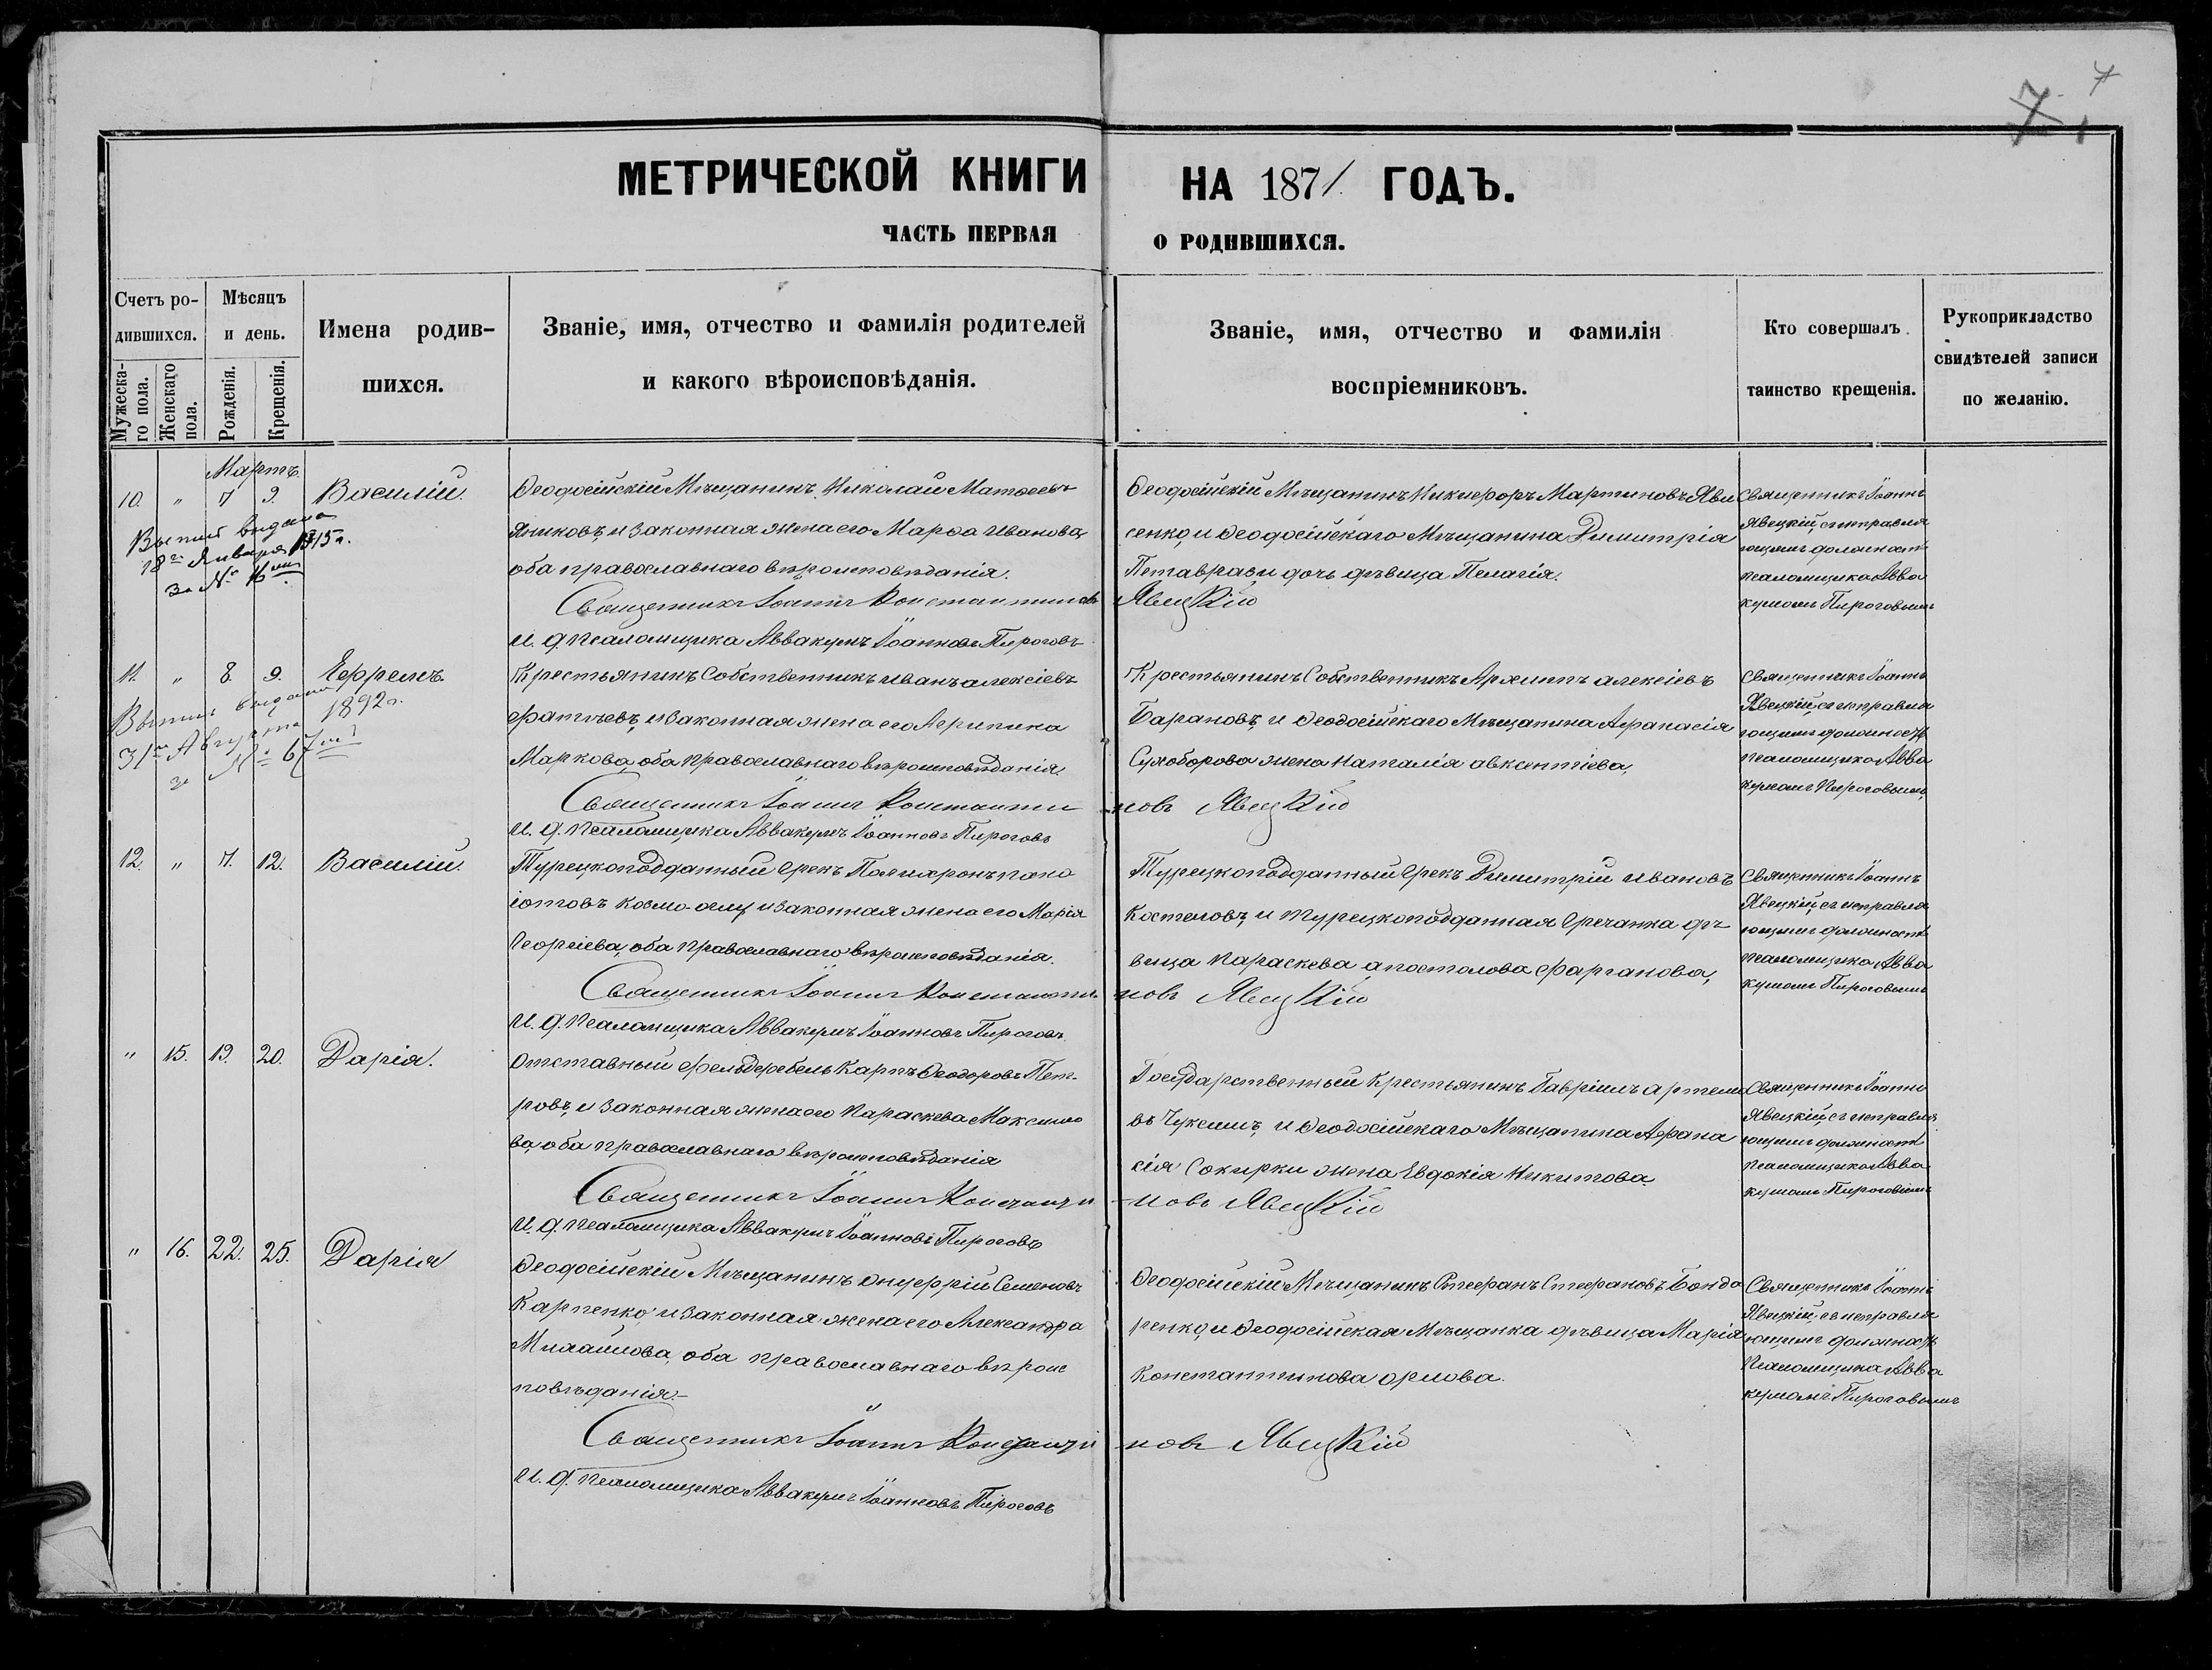 7
МЕТРИЧЕСКОЙ КНИГИ НА 1871 ГОДЪ.
ЧАСТЬ ПЕРВАЯ О РОДИВШИХСЯ.
Счетъ ро-
дившихся.
Мужеска-
го пола.
Женскаго
пола.
Мѣсяцъ
и день.
Рожденія.
Крещенія.
Имена родив-
шихся.
Званіе, имя, отчество и фамилія родителей
и какого вѣроисповѣданія.
Званіе, имя, отчество и фамилія
воспріемниковъ.
Кто совершалъ
таинство крещенія.
Рукоприкладство
свидѣтелей записи
по желанію.
Мартъ
10. " 7 9. Василій
Выпись выдана
18го Января 1915 г.
за №
Ѳеодосійскій Мѣщанинъ Николай Матвеевъ
Яниковъ, и законная жена его Марѳа Иванова
оба православнаго вѣроисповѣданія.
Священникъ Іоаннъ Константиновъ Явецкій
И. д. псаломщика Аввакумъ Іоанновъ Пироговъ
Ѳеодосійскій Мѣщанинъ Никифоръ Мартиновъ Яви
сенко, и Ѳеодосійскаго Мѣщанина Димитрія
дочь дѣвица Пелагія.
Священникъ Іоаннъ
Явецкій, съ исправля
ющимъ должность
псаломщика Авва
кумомъ Пироговымъ
11. " 8. 9. Ефремъ
Выпись выдана
31го Августа 1892 г.
за № 67
Крестьянинъ Собственникъ Иванъ Алексіевъ
Фатѣевъ, и законная жена его Агрипина
Маркова, оба православнаго вѣроисповѣданія.
Священникъ Іоаннъ Константиновъ Явецкій
И. д. псаломщика Аввакумъ Іоанновъ Пироговъ
Крестьянинъ Собственникъ Архиппъ Алексіевъ
Барановъ, и Ѳеодосійскаго Мѣщанина Афанасія
Сухоборова жена Наталія Авксентіева,
Священникъ Іоаннъ
Явецкій, съ исправля
ющимъ должность
псаломщика Авва
кумомъ Пироговымъ,
12. " 7. 12. Василій.
Турецкоподданный Грекъ Полихронъ Пана
іотовъ Козма-оглу, и законная жена его Марія
Георгіева, оба православнаго вѣроисповѣданія.
Священникъ Іоаннъ Константиновъ Явецкій
И. д. псаломщика Аввакумъ Іоанновъ Пироговъ
Турецкоподданный Грекъ Димитрій Ивановъ
Костеловъ, и турецкоподданная Гречанка дѣ
вица Параскева Апостолова Фарганова,
Священникъ Іоаннъ
Явецкій, съ исправля
ющимъ должность
псаломщика Авва
кумомъ Пироговымъ
" 15. 19. 20. Дарія.
Отставный Фельдфебель Карпъ Ѳеодоровъ Пет-
ровъ, и законная жена его Параскева Максимо
ва, оба православнаго вѣроисповѣданія
Священникъ Іоаннъ Константиновъ Явецкій
И. д. псаломщика Аввакумъ Іоанновъ Пироговъ
Государственный Крестьянинъ Гавріилъ Артемо
въ и Ѳеодосійскаго Мѣщанина Афана
сія Сокирки жена Евдокія Никитова.
Священникъ Іоаннъ
Явецкій, съ исправля
ющимъ должность
псаломщика Авва
кумомъ Пироговымъ
" 16. 22. 25. Дарія
Ѳеодосійскій Мѣщанинъ Онуфрій Семеновъ
Карпенко, и законная жена его Александра
Михайлова, оба православнаго вѣроис
повѣданія.—
Священникъ Іоаннъ Константиновъ Явецкій
И. д. псаломщика Аввакумъ Іоанновъ Пироговъ
Ѳеодосійскій Мѣщанинъ Стефанъ Стефановъ Бонда
ренко, и Ѳеодосійская Мѣщанка дѣвица Марія
Константинова Орлова.
Священникъ Іоаннъ
Явецкій, съ исправля
ющимъ должность
псаломщика Авва
кумомъ Пироговымъ